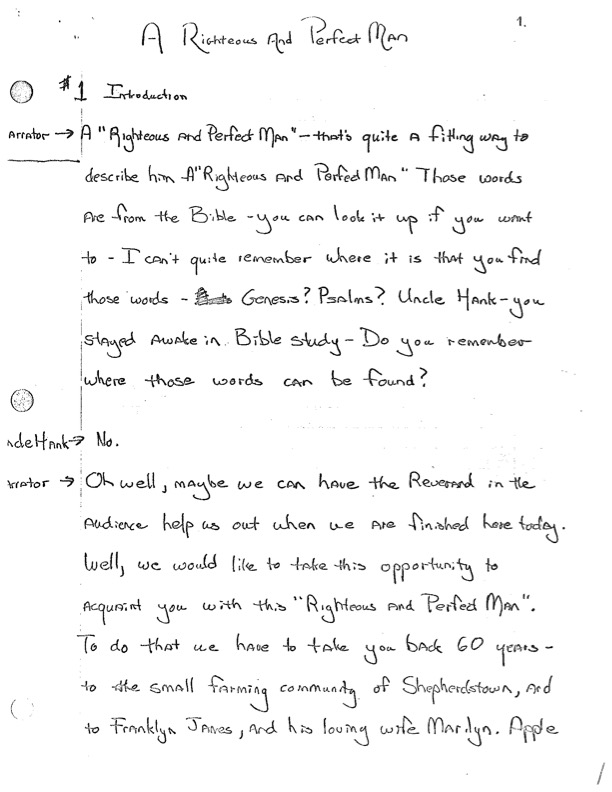 1.
A Righteous And Perfect Man
#1 Introduction
arrator → A "Righteous and Perfect Man" - that's quite a fitting way to
describe him - A "Righteous and Perfect Man" Those words
are from the Bible - you can look it up if you want
to - I can't quite remember where it is that you find
those words - Genesis? Psalms? Uncle Hank - you
stayed awake in Bible study - Do you remember
where those words can be found?
ncle Hank → No.
rrator → Oh well, maybe we can have the Reverand in the
Audience help us out when we are finished here today.
Well, we would like to take this opportunity to
acquaint you with this "Righteous and Perfect Man".
To do that we have to take you back 60 years -
to the small farming community of Shepherdstown, and
to Franklyn Janes, and his loving wife Marilyn. Apple